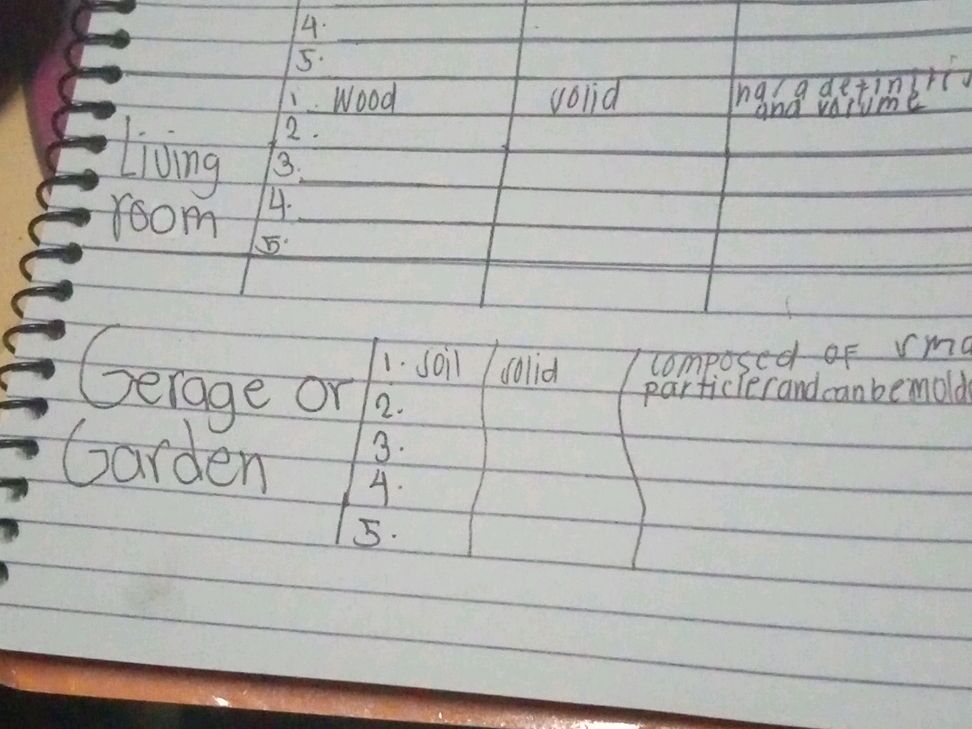 4.
5.
1. Wood solid has a definite
and volume
2.
Living 3.
room 4.
5.
1. soil solid composed of sma
Gerage or 2. particles and can be molde
3.
Garden 4.
5.